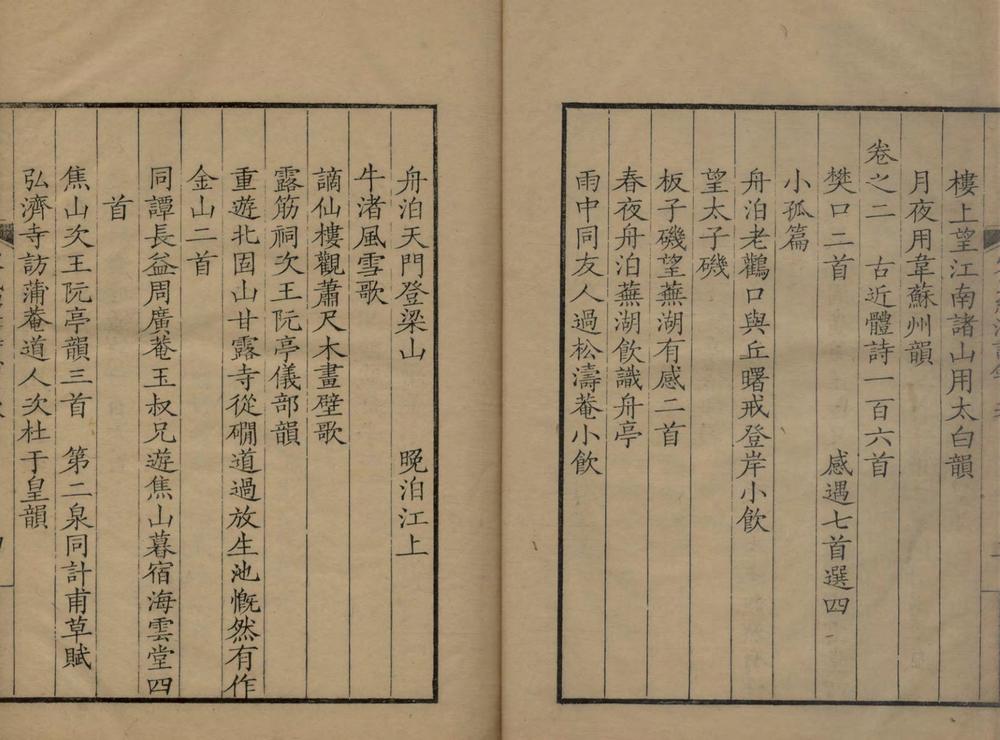 樓上望江南諸山用太白韻
月夜用韋蘇州韻
卷之二　古近體詩一百六首
樊口二首　感遇七首選四
小孤篇
舟泊老鸛口與丘曙戒登岸小飲
望太子磯
板子磯望蕪湖有感二首
春夜舟泊蕪湖飲識舟亭
雨中同友人過松濤菴小飲
舟泊天門登梁山　晚泊江上
牛渚風雪歌
謫仙樓觀蕭尺木畫壁歌
露筋祠次王阮亭儀部韻
重遊北固山甘露寺從磵道過放生池慨然有作
金山二首
同譚長益周廣菴玉叔兄遊焦山暮宿海雲堂四
首
焦山次王阮亭韻三首　第二泉同計甫草賦
弘濟寺訪蒲菴道人次杜于皇韻